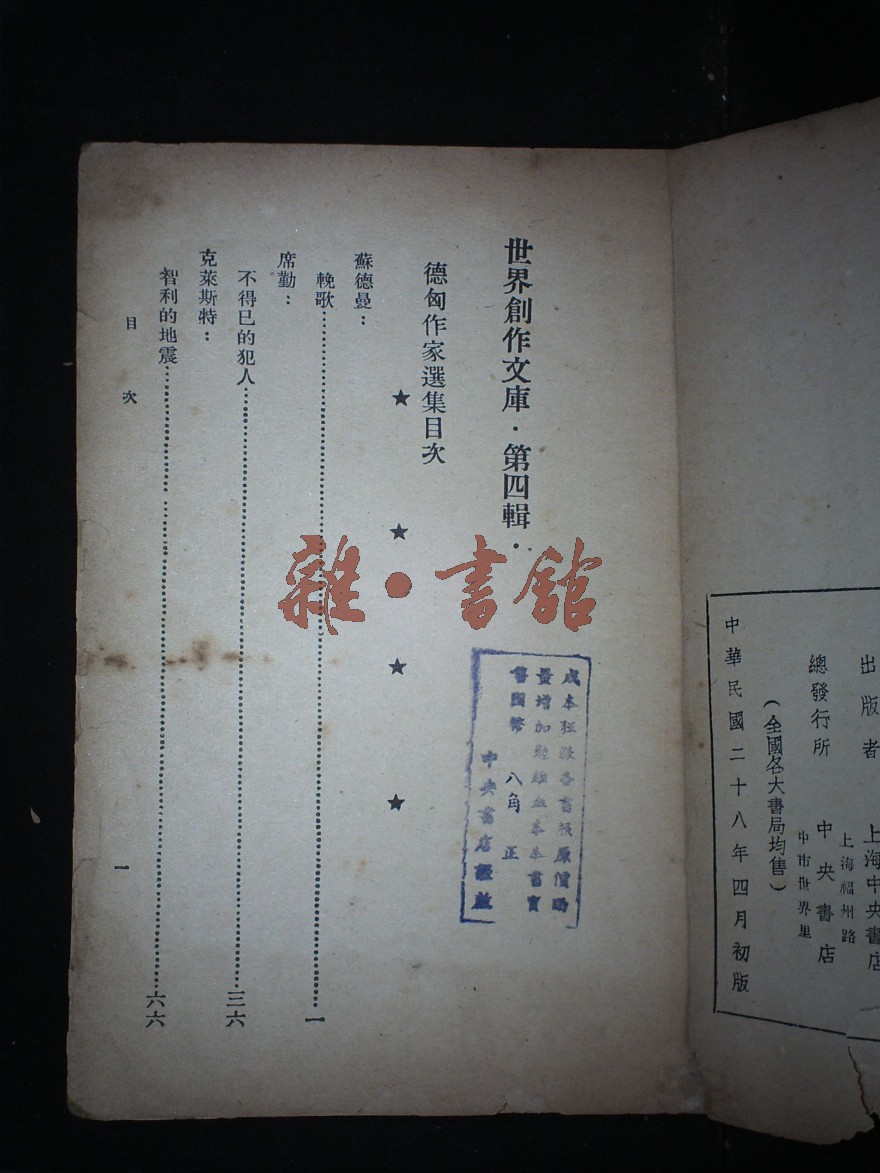 出版者　上海中央書店
總發行所　中央書店
上海福州路
中市世界里
（全國各大書局均售）
中華民國二十八年四月初版
世界創作文庫·第四輯·
德匈作家選集目次
★　★　★　★
蘇德曼：
輓歌……一
席勤：
不得已的犯人……三六
克萊斯特：
智利的地震……六六
目次
一
成本
原價
量增加
書國幣　八角正
中央書店謹啟
雜·書館